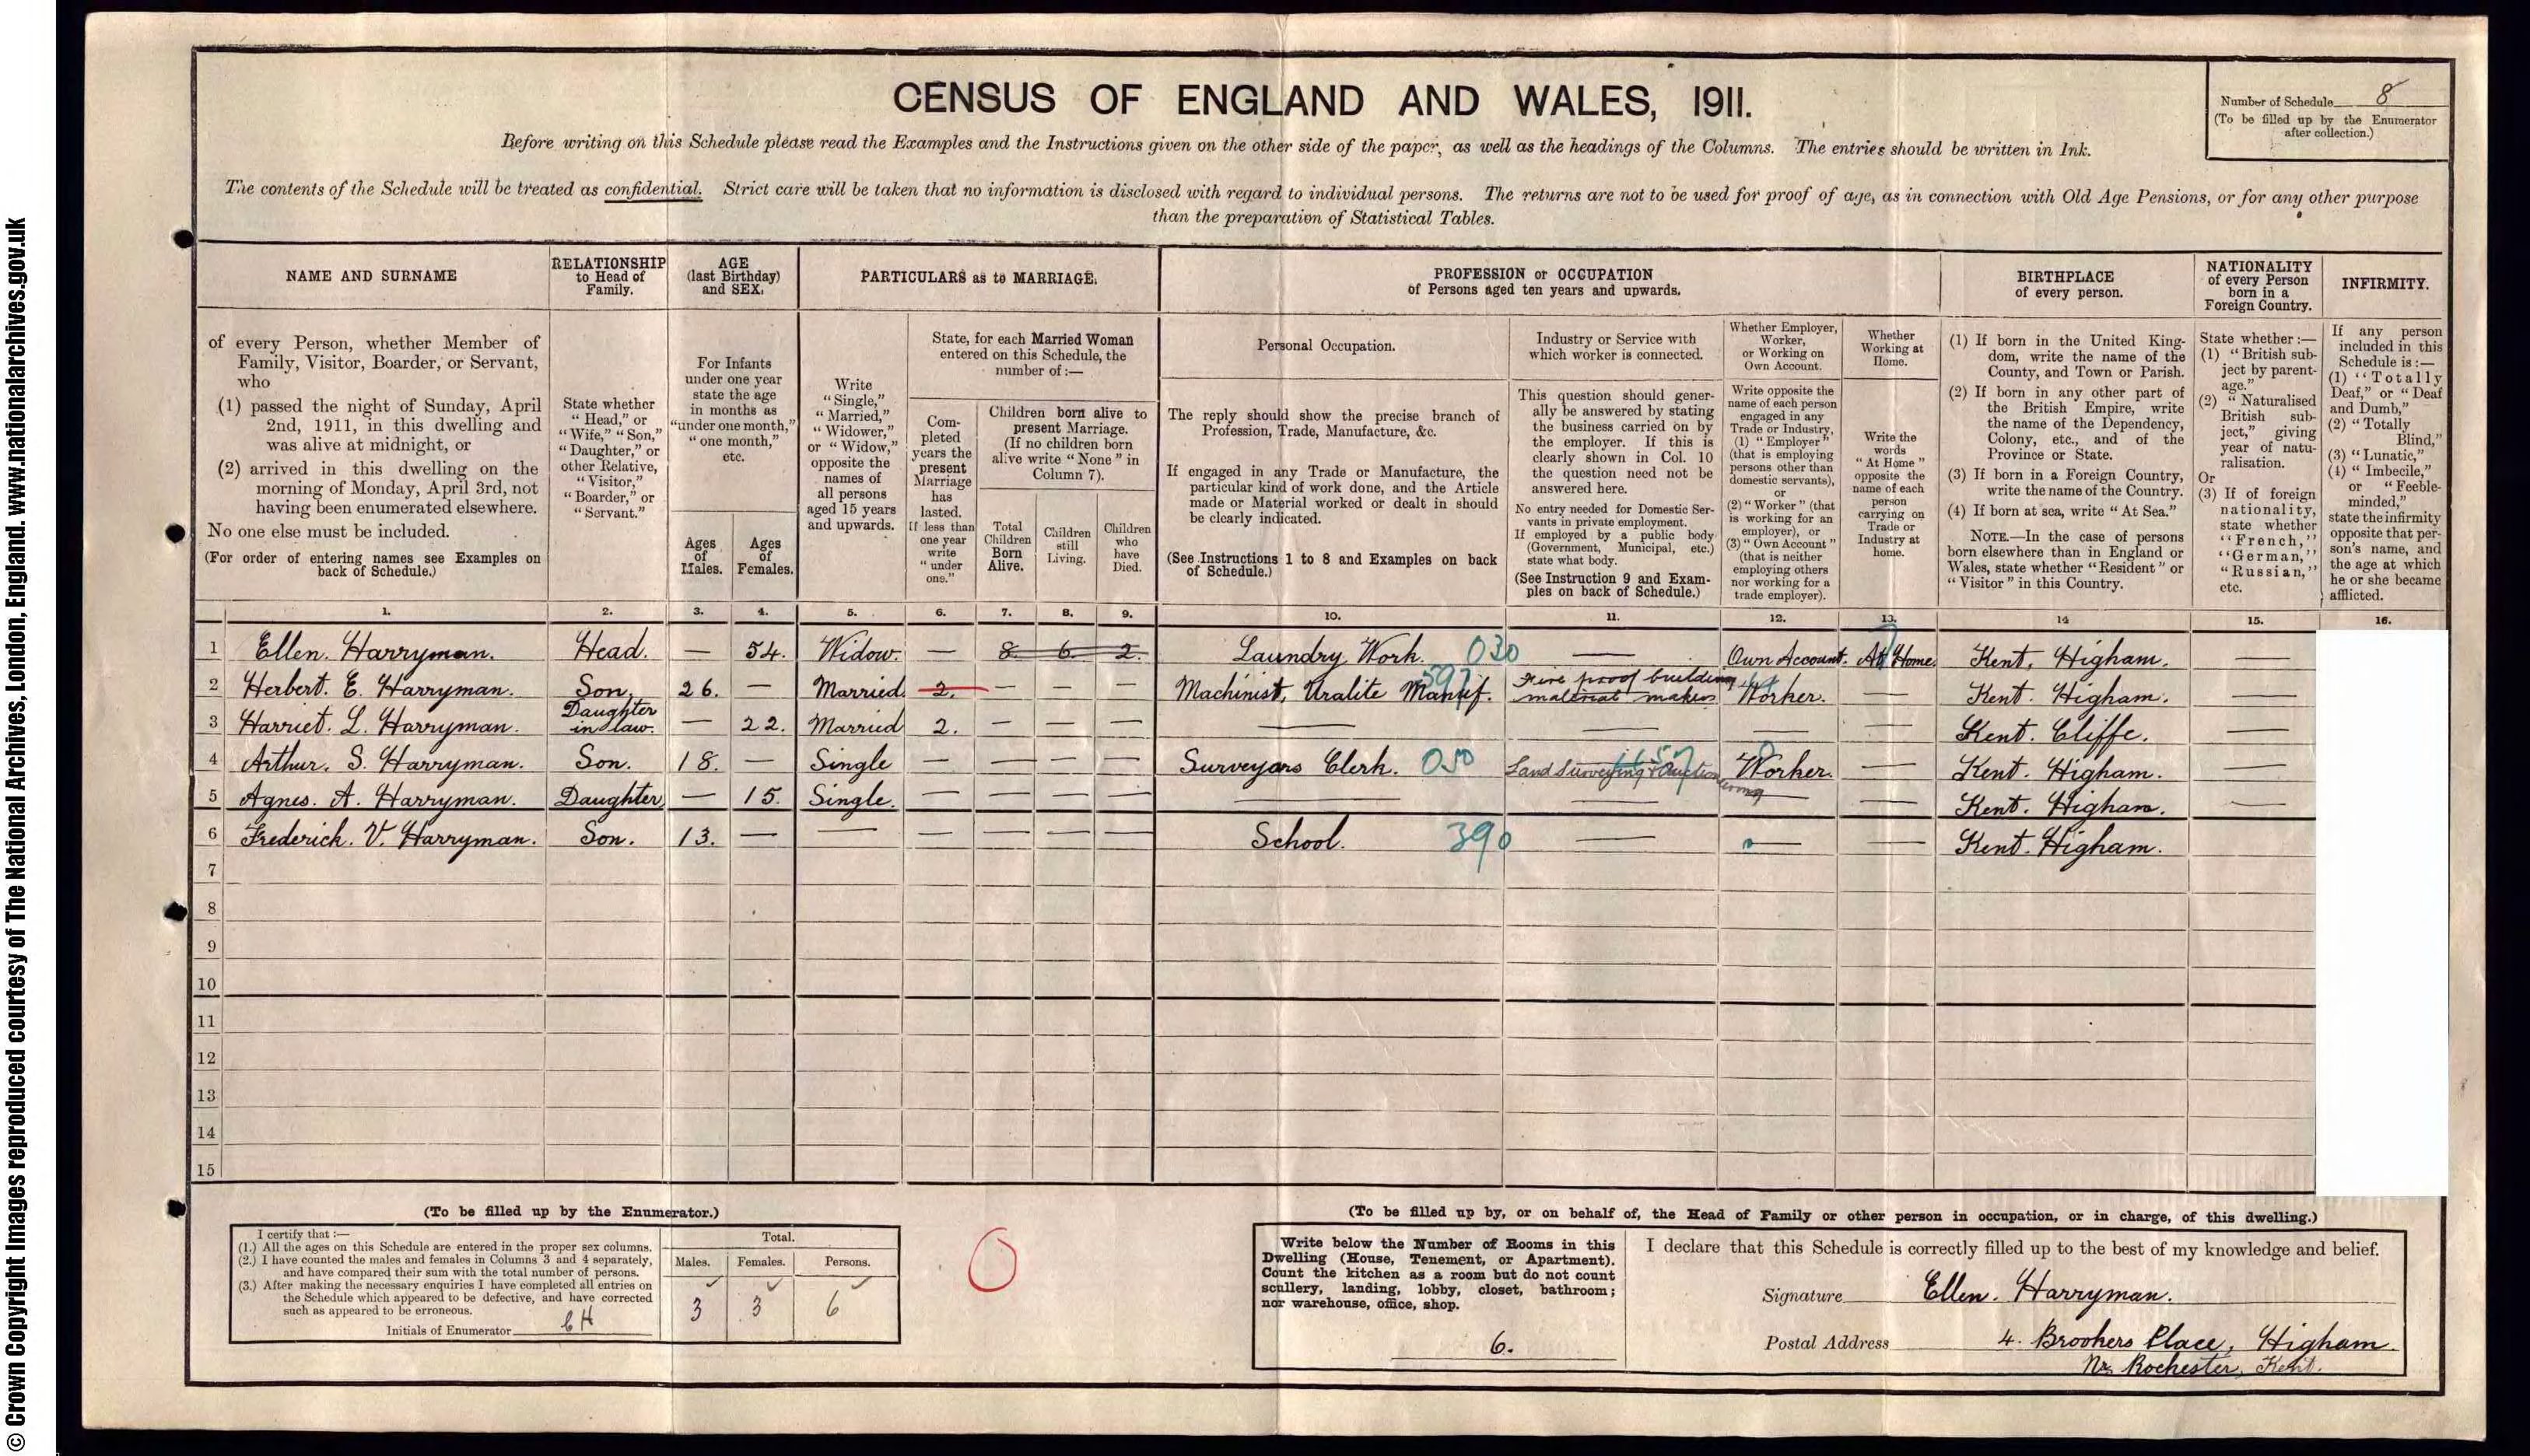 © Crown Copyright Images reproduced courtesy of The National Archives, London, England. www.nationalarchives.gov.uk
CENSUS OF ENGLAND AND WALES, 1911.
Number of Schedule 8
(To be filled up by the Enumerator
after collection.)
Before writing on this Schedule please read the Examples and the Instructions given on the other side of the paper, as well as the headings of the Columns. The entries should be written in Ink.
The contents of the Schedule will be treated as confidential. Strict care will be taken that no information is disclosed with regard to individual persons. The returns are not to be used for proof of age, as in connection with Old Age Pensions, or for any other purpose
than the preparation of Statistical Tables.
NAME AND SURNAME
of every Person, whether Member of
Family, Visitor, Boarder, or Servant,
who
(1) passed the night of Sunday, April
2nd, 1911, in this dwelling and
was alive at midnight, or
(2) arrived in this dwelling on the
morning of Monday, April 3rd, not
having been enumerated elsewhere.
No one else must be included.
(For order of entering names see Examples on
back of Schedule.)
RELATIONSHIP
to Head of
Family.
State whether
"Head," or
"Wife," "Son,"
"Daughter," or
other Relative,
"Visitor,"
"Boarder," or
"Servant."
AGE
(last Birthday)
and SEX.
For Infants
under one year
state the age
in months as
"under one month,"
"one month,"
etc.
Ages
of
Males.
Ages
of
Females.
PARTICULARS as to MARRIAGE.
Write
"Single,"
"Married,"
"Widower,"
or "Widow,"
opposite the
names of
all persons
aged 15 years
and upwards.
State, for each Married Woman
entered on this Schedule, the
number of:—
Com-
pleted
years the
present
Marriage
has
lasted.
If less than
one year
write
"under
one."
Children born alive to
present Marriage.
(If no children born
alive write "None" in
Column 7).
Total
Children
Born
Alive.
Children
still
Living.
Children
who
have
Died.
PROFESSION or OCCUPATION
of Persons aged ten years and upwards.
Personal Occupation.
The reply should show the precise branch of
Profession, Trade, Manufacture, &c.
If engaged in any Trade or Manufacture, the
particular kind of work done, and the Article
made or Material worked or dealt in should
be clearly indicated.
(See Instructions 1 to 8 and Examples on back
of Schedule.)
Industry or Service with
which worker is connected.
This question should gener-
ally be answered by stating
the business carried on by
the employer. If this is
clearly shown in Col. 10
the question need not be
answered here.
No entry needed for Domestic Ser-
vants in private employment.
If employed by a public body
(Government, Municipal, etc.)
state what body.
(See Instruction 9 and Exam-
ples on back of Schedule.)
Whether Employer,
Worker,
or Working on
Own Account.
Write opposite the
name of each person
engaged in any
Trade or Industry,
(1) "Employer"
(that is employing
persons other than
domestic servants),
or
(2) "Worker" (that
is working for an
employer), or
(3) "Own Account"
(that is neither
employing others
nor working for a
trade employer).
Whether
Working at
Home.
Write the
words
"At Home"
opposite the
name of each
person
carrying on
Trade or
Industry at
home.
BIRTHPLACE
of every person.
(1) If born in the United King-
dom, write the name of the
County, and Town or Parish.
(2) If born in any other part of
the British Empire, write
the name of the Dependency,
Colony, etc., and of the
Province or State.
(3) If born in a Foreign Country,
write the name of the Country.
(4) If born at sea, write "At Sea."
NOTE.—In the case of persons
born elsewhere than in England or
Wales, state whether "Resident" or
"Visitor" in this Country.
NATIONALITY
of every Person
born in a
Foreign Country.
State whether:—
(1) "British sub-
ject by parent-
age."
(2) "Naturalised
British sub-
ject," giving
year of natu-
ralisation.
Or
(3) If of foreign
nationality,
state whether
"French,"
"German,"
"Russian,"
etc.
INFIRMITY.
If any person
included in this
Schedule is:—
(1) "Totally
Deaf," or "Deaf
and Dumb,"
(2) "Totally
Blind,"
(3) "Lunatic,"
(4) "Imbecile,"
or "Feeble-
minded,"
state the infirmity
opposite that per-
son's name, and
the age at which
he or she became
afflicted.
1. 2. 3. 4. 5. 6. 7. 8. 9. 10. 11. 12. 13. 14 15. 16.
1 Ellen. Harryman. Head. — 54. Widow. — 8 6 2. Laundry Work. 030 — Own Account. At Home. Kent, Higham. —
2 Herbert. E. Harryman. Son. 26. — Married. 2. — — — Machinist, Uralite Manuf. 597 Fire proof building material makers Worker. — Kent. Higham. —
3 Harriet. L. Harryman. Daughter in law. — 22. Married 2. — — — — — — — Kent. Cliffe. —
4 Arthur. S. Harryman. Son. 18. — Single — — — — Surveyors Clerk. 050 Land Surveying & Auctioneering Worker. — Kent. Higham. —
5 Agnes. A. Harryman. Daughter — 15. Single. — — — — — — — — Kent. Higham. —
6 Frederick. V. Harryman. Son. 13. — — — — — — School. 390 — — — Kent. Higham.
7
8
9
10
11
12
13
14
15
(To be filled up by the Enumerator.)
I certify that:—
(1.) All the ages on this Schedule are entered in the proper sex columns.
(2.) I have counted the males and females in Columns 3 and 4 separately,
and have compared their sum with the total number of persons.
(3.) After making the necessary enquiries I have completed all entries on
the Schedule which appeared to be defective, and have corrected
such as appeared to be erroneous.
Initials of Enumerator CH
Total.
Males. Females. Persons.
3 3 6
(To be filled up by, or on behalf of, the Head of Family or other person in occupation, or in charge, of this dwelling.)
Write below the Number of Rooms in this
Dwelling (House, Tenement, or Apartment).
Count the kitchen as a room but do not count
scullery, landing, lobby, closet, bathroom;
nor warehouse, office, shop.
6.
I declare that this Schedule is correctly filled up to the best of my knowledge and belief.
Signature Ellen. Harryman.
Postal Address 4. Brookers Place, Higham
Nr. Rochester, Kent.